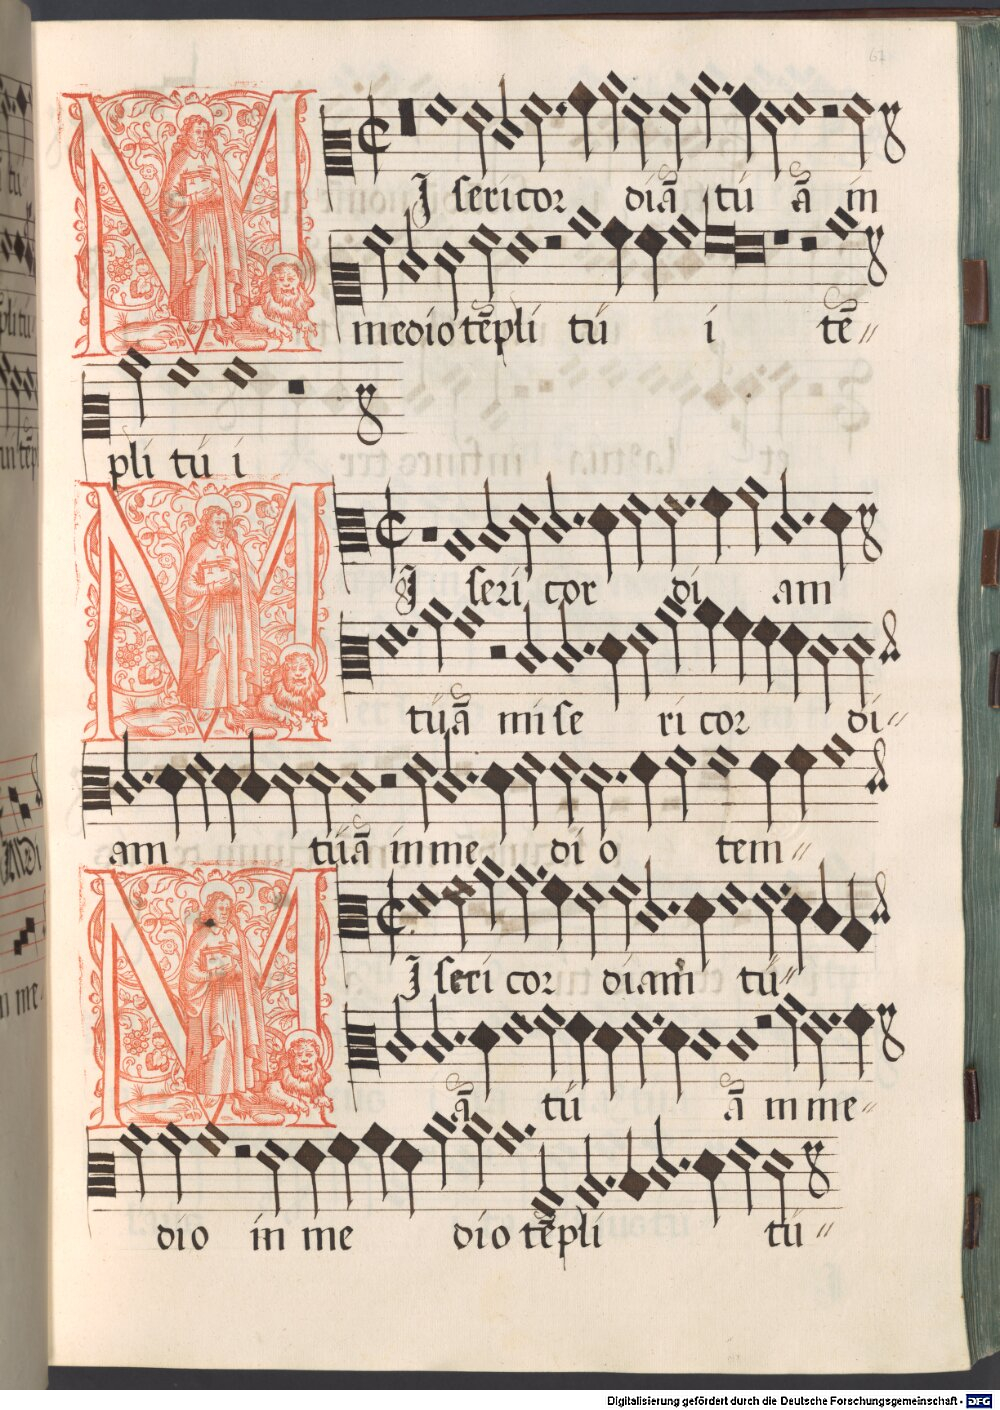 67
MIsericordiā tuā in
medio tēpli tu i tē〃
pli tu i
MIsericordi am
tuā misericordi〃
am tuā in medio tem〃
MIsericordiam tu〃
ā tu ā in me〃
dio in medio tēpli tu〃
Digitalisierung gefördert durch die Deutsche Forschungsgemeinschaft - DFG